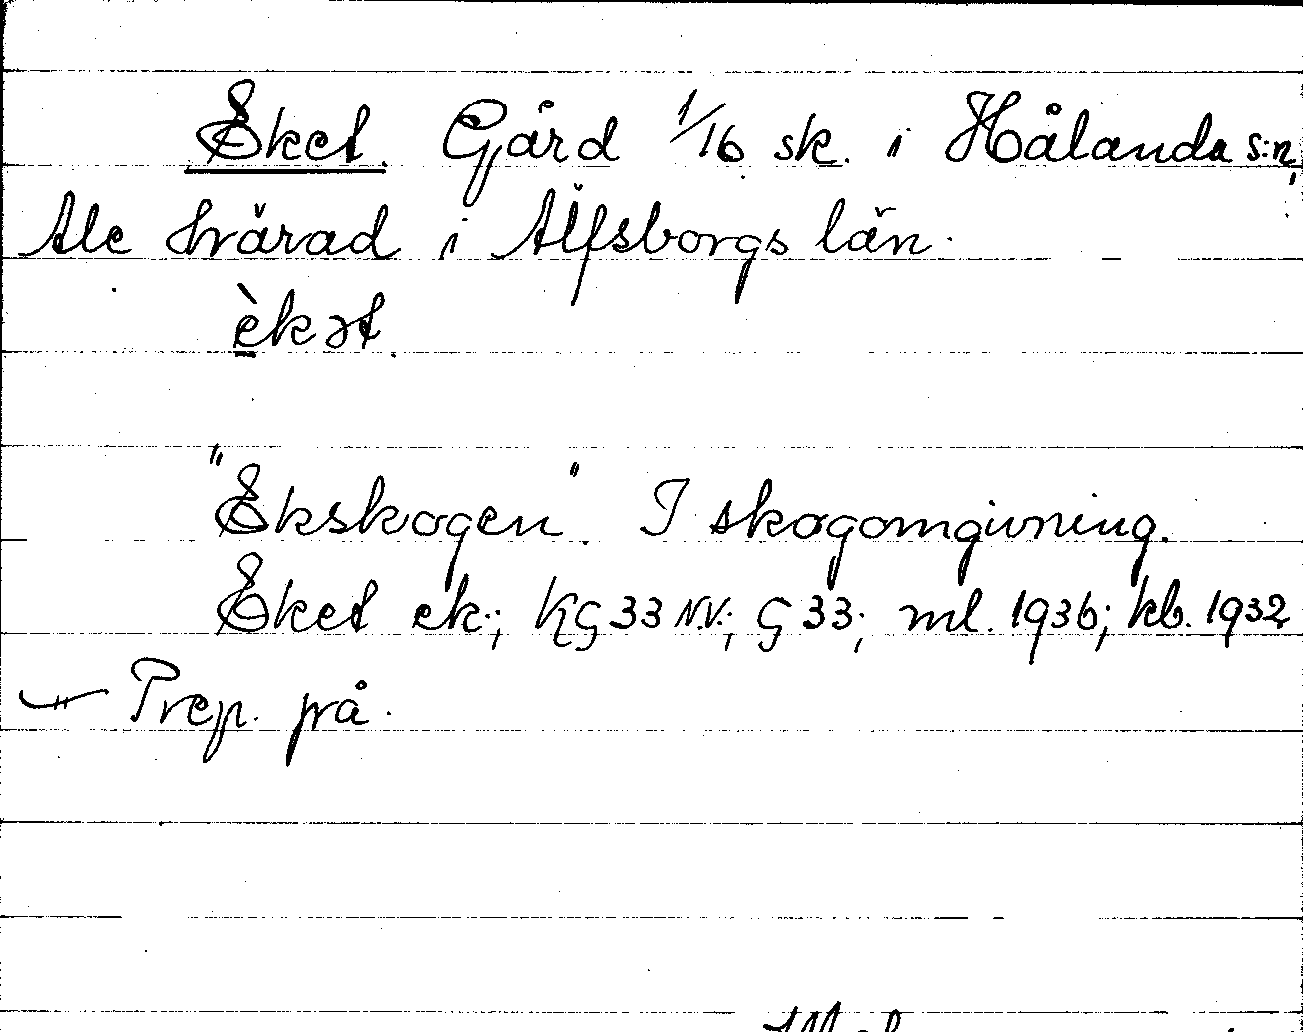 Eket. Gård 1/16 sk. i Hålanda s:n,
Ale härad i Älfsborgs län.
èkət.
"Ekskogen". I skogomgivning.
Eket ek.; KG 33 N.V.; G 33; ml. 1936; kb. 1932
Prep. på.